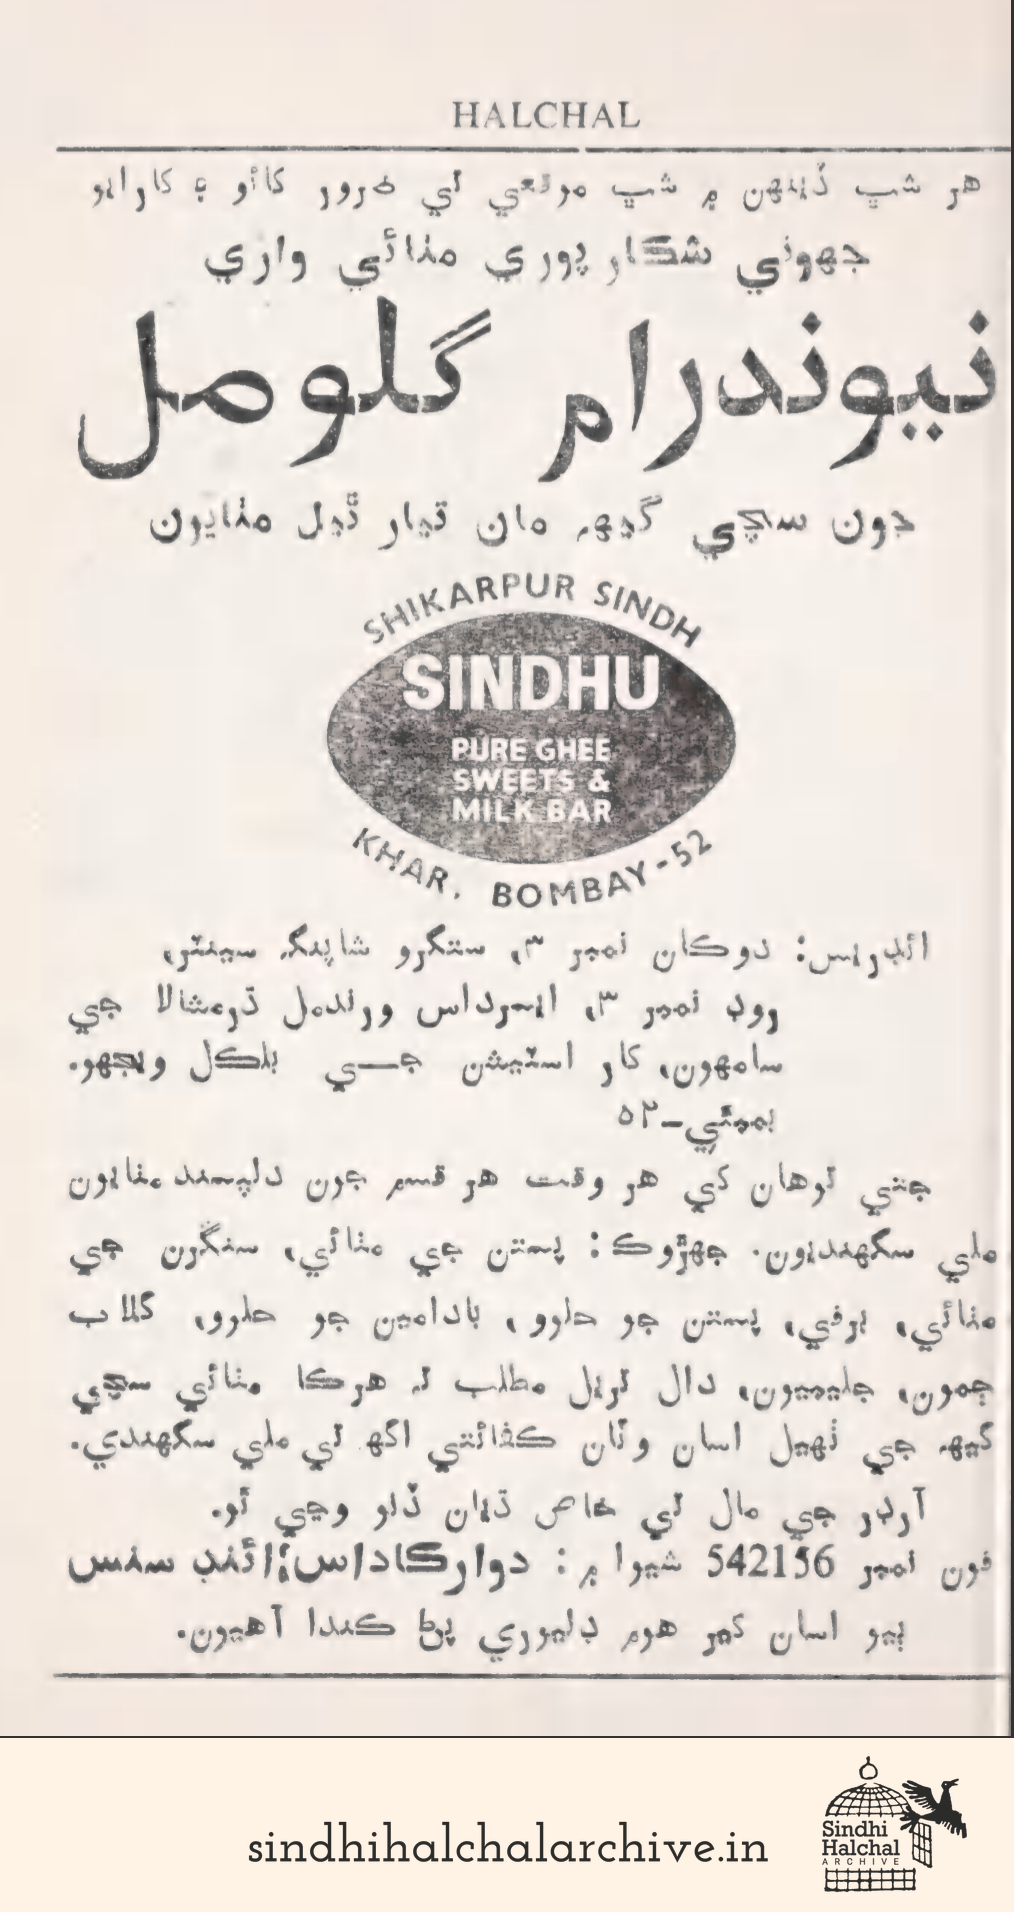 HALCHAL
هر شپ ڏينهن ۾ شپ موقعي تي ضرور کائو ۽ کارايو
جهوني شڪارپوري مٺائي واري
نيوندرام گلومل
جون سچي گيهہ مان تيار ٿيل مٺايون
SHIKARPUR SINDH
SINDHU
PURE GHEE
SWEETS &
MILK BAR
KHAR, BOMBAY-52
ائڊريس: دوڪان نمبر ۳، سنگرو شاپنگ سينٽر،
روڊ نمبر ۳، ايسرداس ورندمل ڌرمشالا جي
سامهون، کار اسٽيشن جي بلڪل ويجهو.
بمبئي-۵۲
جتي توهان کي هر وقت هر قسم جون دلپسند مٺايون
ملي سگهنديون. جهڙوڪ: پستن جي مٺائي، سنگرن جي
مٺائي، برفي، پستن جو حلوو، بادامين جو حلوو، گلاب
ڄمون، جليبيون، دال تريل مطلب تہ هرڪا مٺائي سچي
گيهہ جي ٺهيل اسان وٽان ڪفائتي اگهہ تي ملي سگهندي.
آرڊر جي مال تي خاص ڌيان ڏنو وڃي ٿو.
فون نمبر 542156 شيوا ۾: دوارڪاداس ائنڊ سنس
ٻيو اسان گهر هوم ڊليوري پڻ ڪندا آهيون.
sindhihalchalarchive.in
Sindhi
Halchal
ARCHIVE